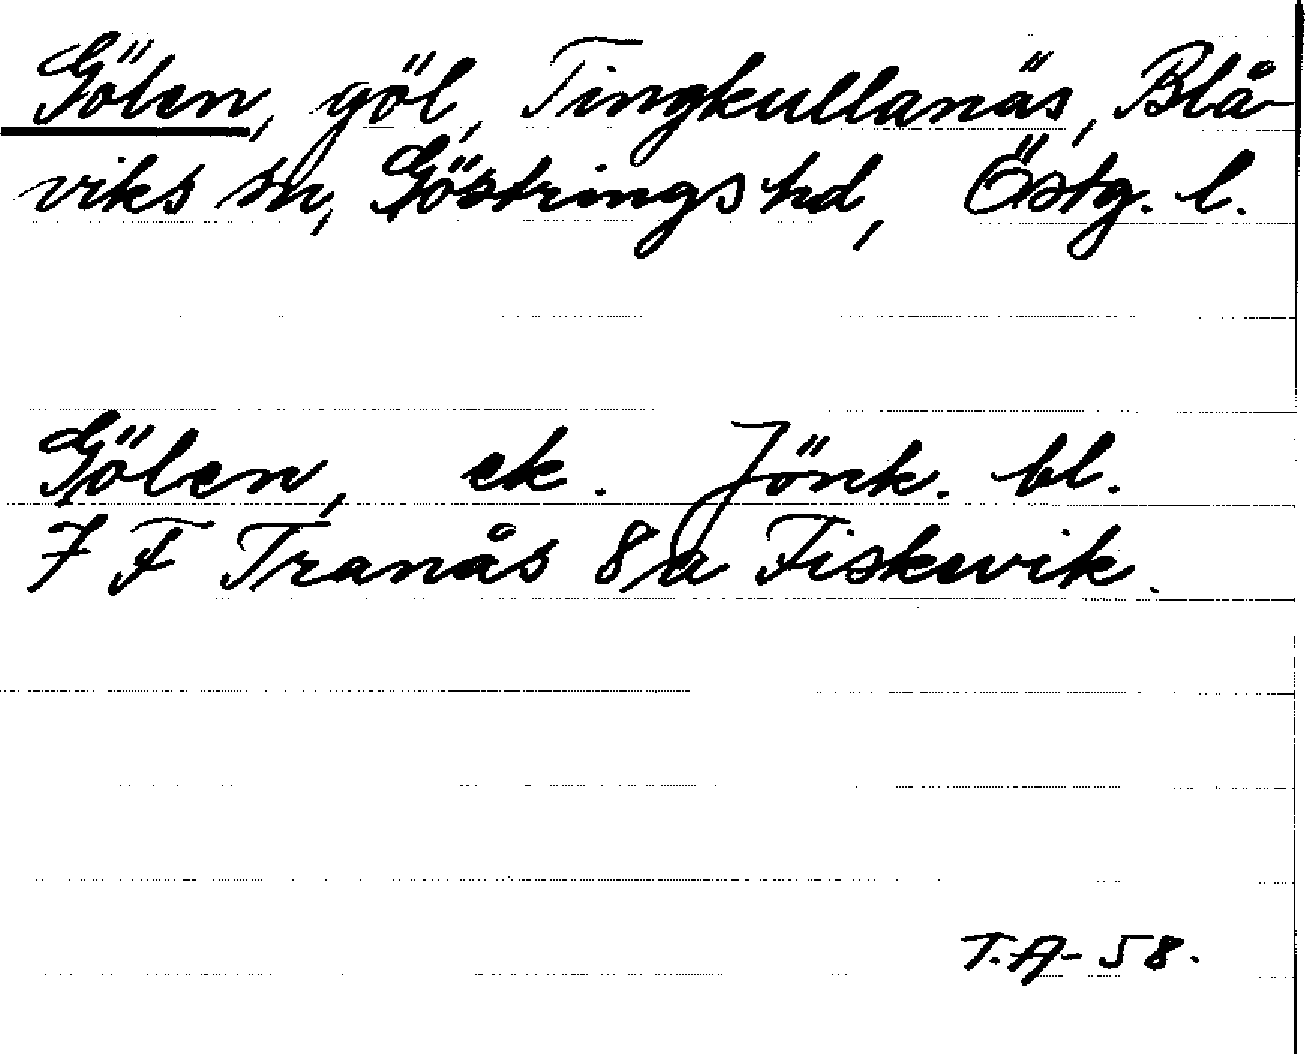 Gölen, göl, Tingkullanäs, Blå-
viks sn, Göstrings hd, Östg. l.
Gölen, ek. Jönk. bl.
7 F Tranås 8a Fiskevik.
T.A- 58.